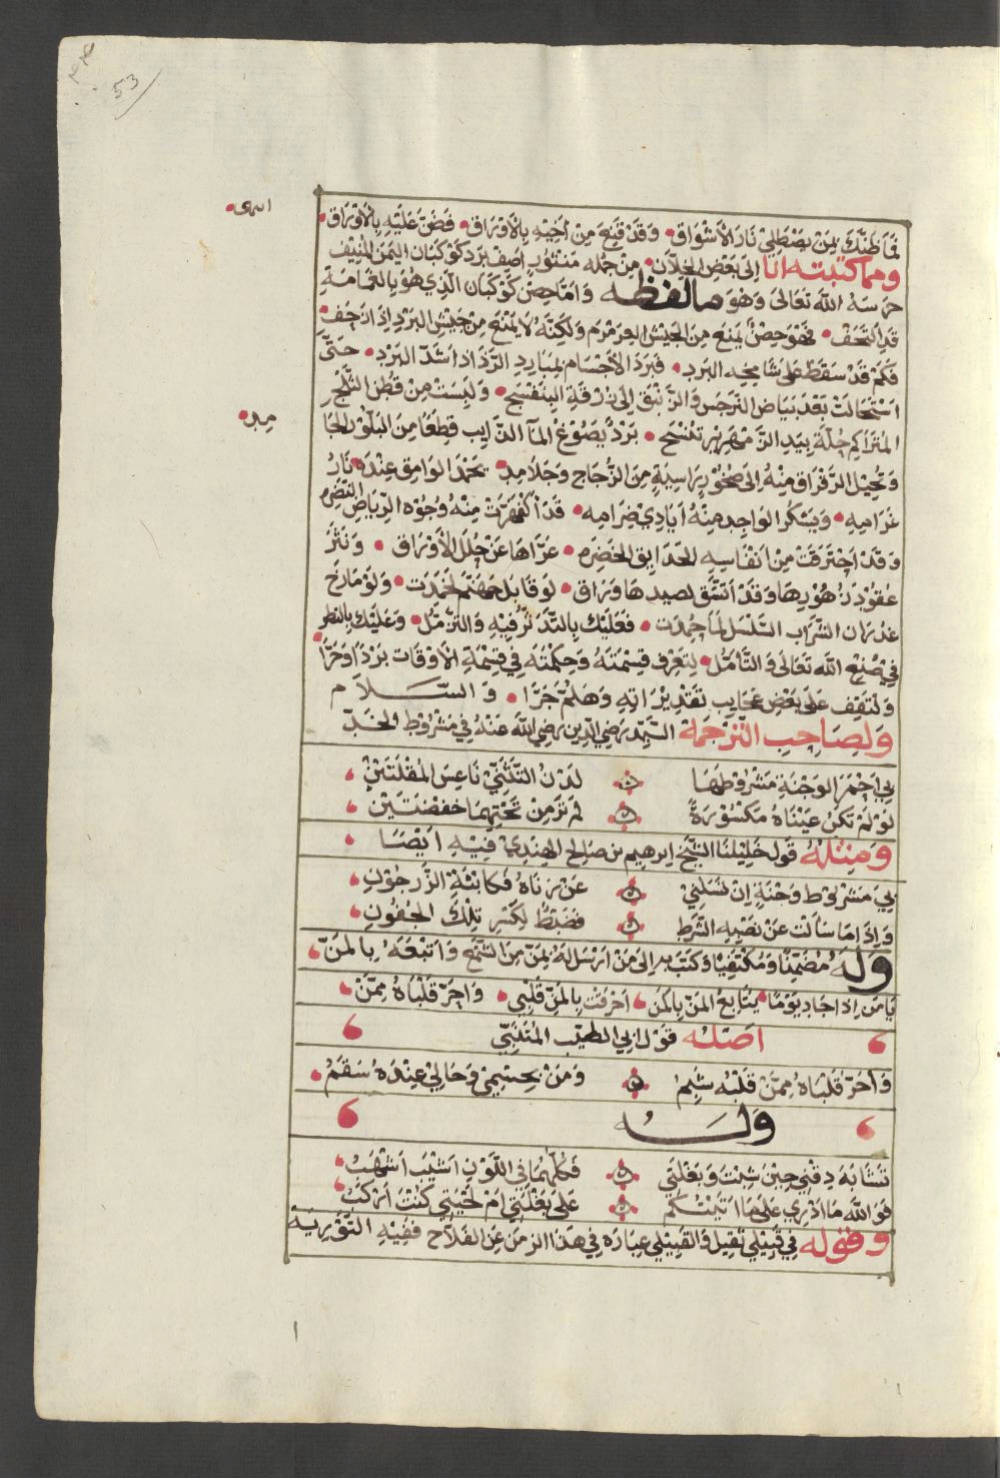 53
فَمَا ظَنُّكَ بِمَنْ يَصْطَلِيْ نَارَ الأَشْوَاق • وَقَدْ قَنِعَ مِنْ أَخِيْهِ بِالأَوْرَاق • فَضَنَّ عَلَيْهِ بِالأَوْرَاق •
ومما كتبته انا إلى بَعْضِ الخِلّان • مِنْ جمله مَنثُورٍ اَصِفُ بَرَدَ كَوْكَبَان اليَمَن المُنِيْف
حَرسَهُ اللهَ تَعَالَى وَهُوَ ما لفظه وَامّا حِصْنُ كَوْكَبَان الَّذِي هُوَ بِالغَمَامَةِ
قَدِ الْتَحَفْ • فَهْوَ حِصْنٌ يَمنَع مِنَ الجَيْشِ العَرَمْرَم وَلَكِنَّهُ لَا يَمْنَع مِنْ جَيْشِ البَرْدِ اِذَا زَحَفْ •
فَكَمْ قَدْ سَقَطَ عَلَى شَامِخِه البَرَد • فَبَرَدَ الأَجْسَام بِمَبَارِدِ الرَّذَاذ اشَدّ البَرْد • حَتَّى
اسْتَحَالَتْ بَعْدَ بَيَاض النَّرجَس وَالزَّنْبَق إِلَى زُرْقَةِ البَنَفْسَج • وَلَبِسَتْ مِنْ قُطْنِ الثَّلْجِ
المُتَرَاكِمِ حُلَّةً بِيَدِ الزَّمْهَرِيْر تُنْسَج • بَرْدٌ يَصُوْغُ المآ الذَّايِب قِطَعًا مِنَ البَلَّوْر الجَامِد •
وَتُحِيْل الرَّقْرَاق مِنْهُ إِلَى صُخُوْرٍ رَاسِيَةٍ مِنَ الزُّجَاج وَجَلَامِد • يَحْمَدُ الوَامِق عِنْدَهُ نَارُ
غَرَامِهِ • وَيَشْكُر الوَاجِد مِنْهُ اَيَادِيْ ضِرَامِه • قَدْ اكْفَهَرَّتْ مِنْهُ وُجُوْه الرِّيَاضِ النُّضَّر •
وَقَدْ احْتَرَقَتْ مِنْ اَنْفَاسِهِ الحَدَايِق الخَضِرَه • عَرَّاهَا عَنْ حُلَلِ الأَوْرَاق • وَنَثَرَ
عُقُوْدَ زُهُوْرِهَا وَقَدْ اتّسَقَ نضيدهَا وَرَاق • لَوْ قَابَلَ جَهَنَّم لَخَمَدَتْ • وَلَوْ مَازَجَ
غُدْرَان الشَّرَاب السَّلْسَل لَمَا جَمُدَتْ • فَعَلَيْكَ بِالتَّدَثُّر فِيْهِ وَالتَّزَمُّل • وَعَلَيْكَ بِالنظر
فِي صُنْعِ اللهِ تَعَالَى وَالتَّأَمُّل • لِتَعْرِف قِسْمَتَهُ وَحِكْمَتَهُ فِي قِسْمَةِ الأَوْقَات بَرْدًا وَحَرًّا •
وَلْتَقِف عَلَى بَعْضِ عَجَايِب تَقْدِيْرَاتِهِ وَهَلُمَّ جَرَّا • وَ السّلام
وَلِصَاحِبِ التَّرْجَمَة السَّيِّد رَضِي الدِّين رَضِيَ اللهُ عَنْهُ فِي مَشْرُوْطِ الخَدّ
بِيْ اَحْمَرُ الوَجْنَةِ مَشْرُوْطُهَا لَدْنُ التَّثَنِّيْ نَاعِسُ المُقْلَتَيْنْ
لَوْ لَمْ تَكُنْ عَيْنَاهُ مَكْسُوْرَةً لَمْ تَرَ مِنْ تَحْتِهِمَا خفضَتَيْن
وَمِثْلُهُ قَول خَلِيْلنَا الشّيْخ ابرهيم بن صَالِح الهِنْدِيّ فِيْهِ اَيْضًا
بِيَ مَشْرُوْط وَجْنَةٍ اِنْ تَسَلْنِيْ عَنْ رنَاهُ فَكَابْنَةِ الزَّرَجُوْنِ
وَإِذَا مَا سَأَلْتَ عَنْ نَصْبِهِ الشَّرْط فَضَبْطٌ لِكَسْرِ تِلْكَ الجُفُونِ
وَلَهُ مُضَمِّنًا وَمُكْتَفِيًا وَكَتَبَ بِهِ إِلَى مَنْ اَرْسَلَ لَهُ بِمَنٍّ مِنَ الشَّمْع وَاَتْبَعَهُ بِالمَنّ
يَا مَن اِذَا جَادَ يَوْمًا • يُتَابِعُ المَنَّ بِالمَنّ • اَحْرَقْتَ بِالمَنِّ قَلْبِي • وَاحَرَّ قَلْبَاهُ مِمَّنْ
اَصْلُهُ قَوْل ابِي الطيّب المُتَنَبِّي
وَاحَرّ قَلْبَاهُ مِمَّنْ قَلْبُهُ شَبِمُ وَمَنْ بِجِسْمِيْ وَحَالِيْ عِنْدَهُ سَقَمُ •
وَلَــهُ
تَشَابَهَ دِقْنِي حِيْنَ شِبْتَ وَبَغْلَتِي فَكُلُّهُمَا فِي اللَّوْنِ اَشْيَبُ اَشْهَبُ
فَوَاللهِ مَا اَدْرِي عَلَى مَا اَتَيْتُكُمْ عَلَى بَغْلَتِيْ اَمْ لِحْيَتِي كُنْتُ اَرْكَبُ
وقوله فِي قَبِيْلِي ثَقِيْل وَالقَبِيْلِي عِبَارَه فِي هَذَا الزمَن عَنِ الفَلَّاح فَفِيْهِ التَّوْرِيَة